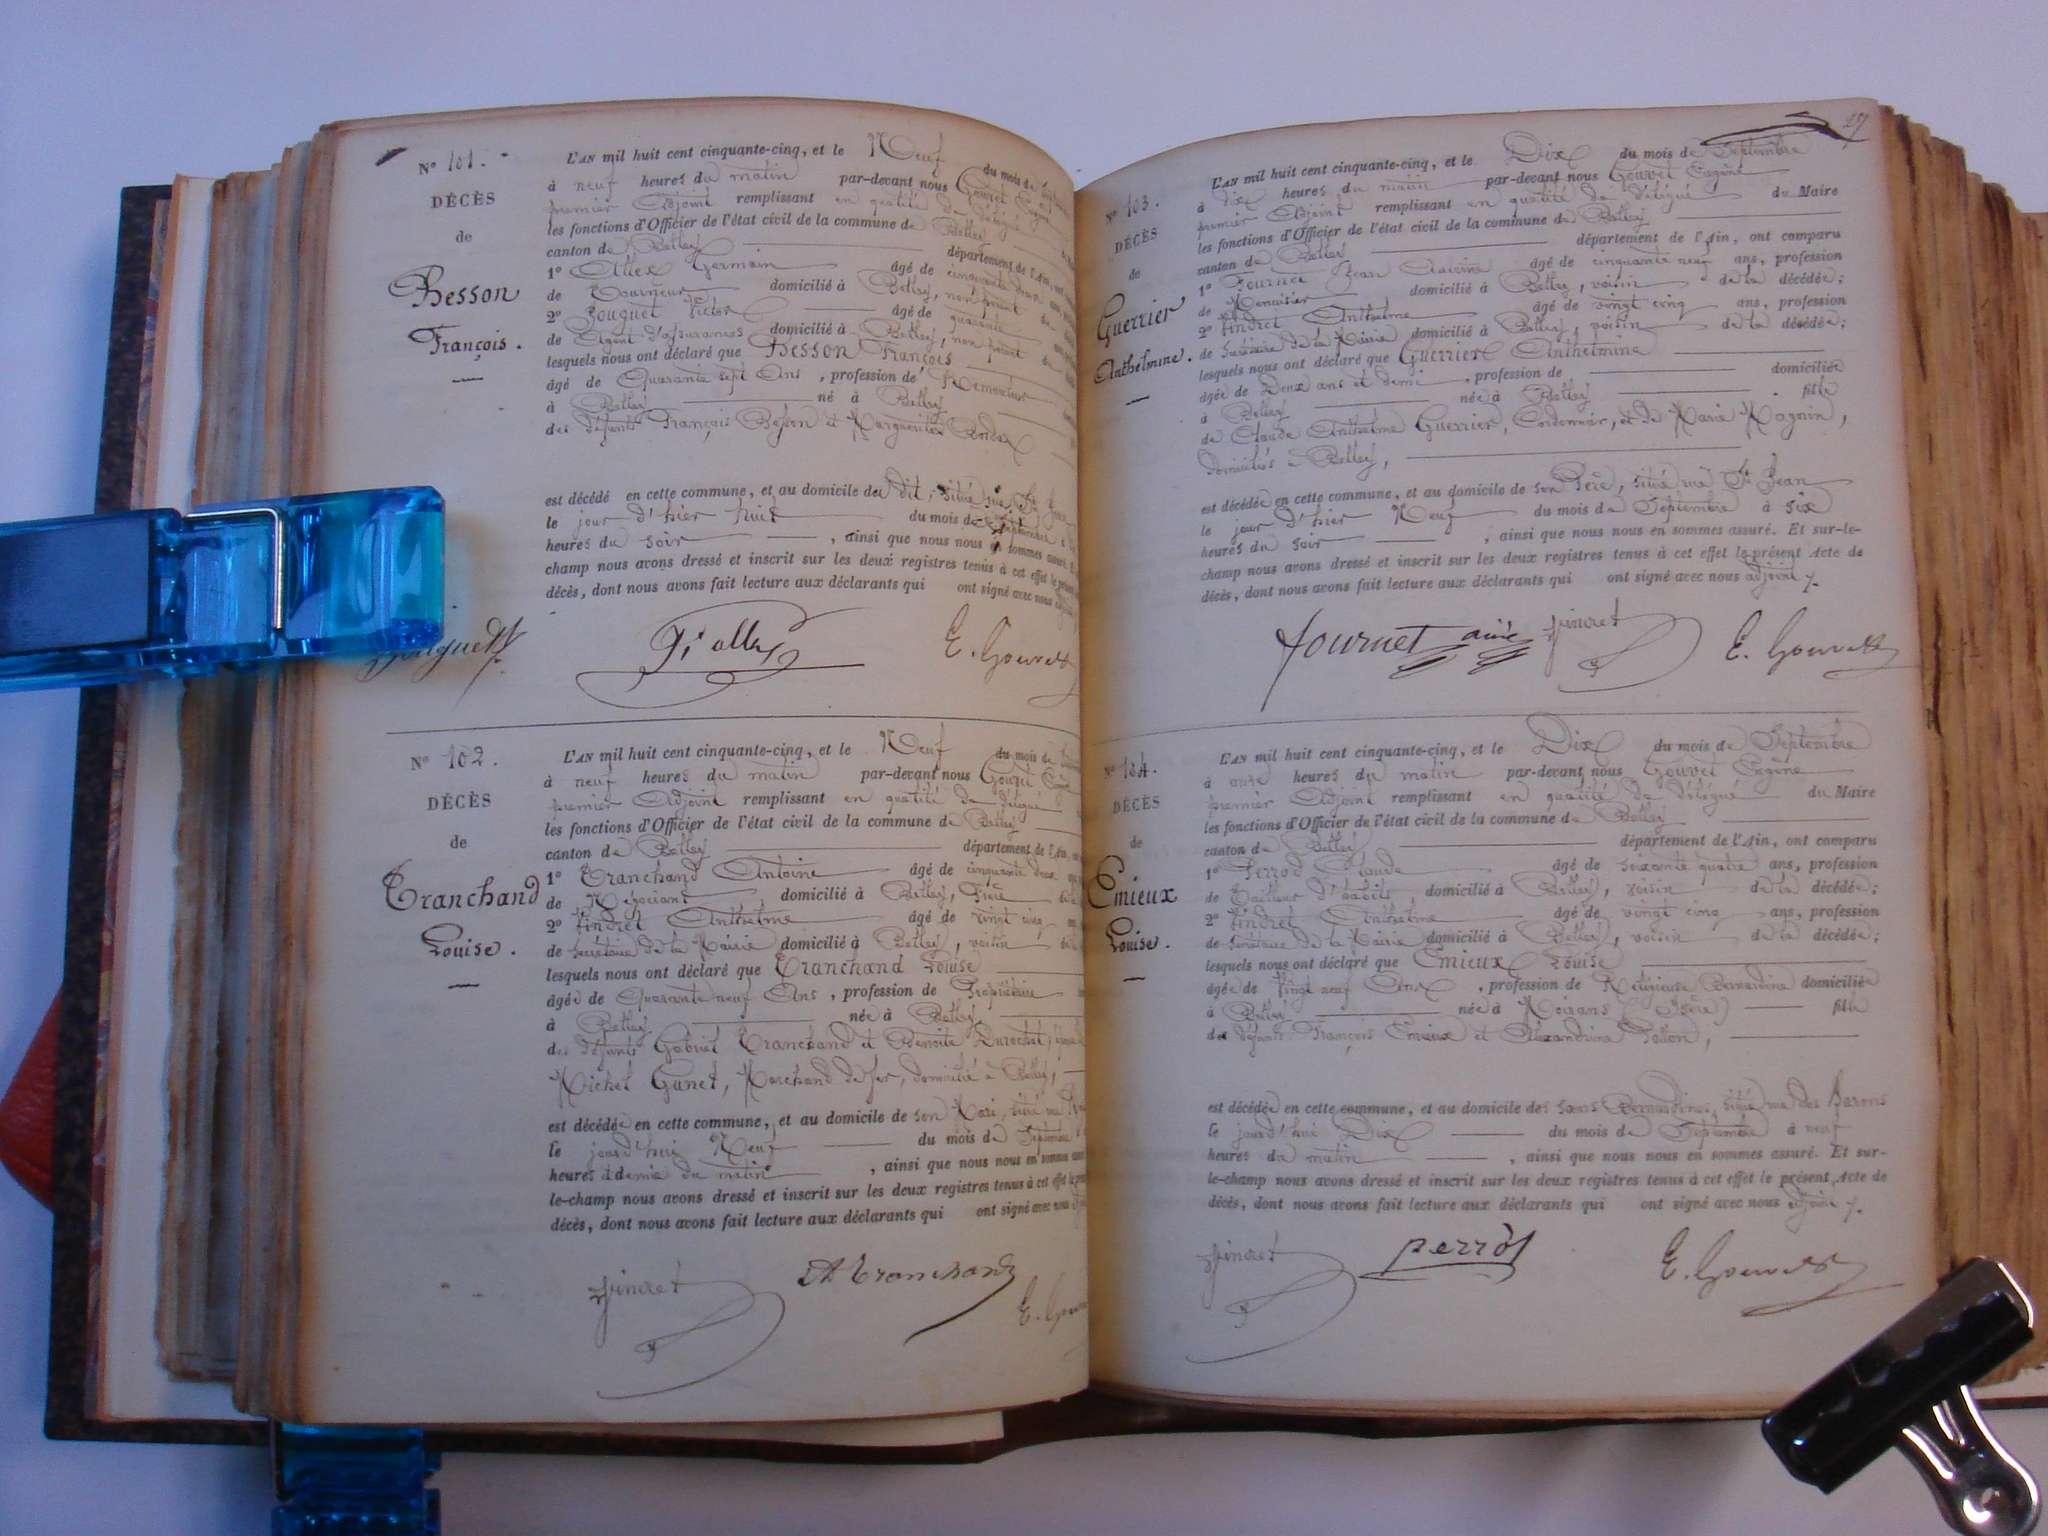 N° 101.
DÉCÈS
de
Besson
François.
L'AN mil huit cent cinquante-cinq, et le Neuf du mois de
à neuf heures du matin par-devant nous Gouvet
premier Adjoint remplissant en qualité de délégué
les fonctions d'Officier de l'état civil de la commune de Belley
canton de Belley département de l'Ain,
1° Germain âgé de cinquante
de Tourneur domicilié à Belley, non parent
2° Bouguet Victor âgé de quarante
de Agent d'assurances domicilié à Belley, non parent
lesquels nous ont déclaré que Besson François
âgé de Quarante sept Ans, profession de
à Belley né à Belley
des défunts François Besson et Marguerite
est décédé en cette commune, et au domicile du dit, situé rue St
le jour d'hier huit du mois de Septembre
heures du soir, ainsi que nous nous en sommes assuré.
champ nous avons dressé et inscrit sur les deux registres tenus à cet effet le présent
décès, dont nous avons fait lecture aux déclarants qui ont signé avec nous
E. Gouvet
N° 102.
DÉCÈS
de
Tranchand
Louise.
L'AN mil huit cent cinquante-cinq, et le Neuf du mois de
à neuf heures du matin par-devant nous Gouvet
premier Adjoint remplissant en qualité de délégué
les fonctions d'Officier de l'état civil de la commune de Belley
canton de Belley département de l'Ain,
1° Tranchand Antoine âgé de cinquante deux
de Négociant domicilié à Belley, frère
2° Findret Anthelme âgé de vingt cinq
de Secrétaire de la Mairie domicilié à Belley, voisin
lesquels nous ont déclaré que Tranchand Louise
âgée de Quarante neuf Ans, profession de Propriétaire
à Belley née à Belley
des défunts Gabriel Tranchand et Benoite
Michel Gunet, Marchand de fer, domicilié à Belley,
est décédée en cette commune, et au domicile de son Mari, situé rue
le jourd'hui Neuf du mois de Septembre
heures demie du matin, ainsi que nous nous en sommes
le-champ nous avons dressé et inscrit sur les deux registres tenus à cet effet le
décès, dont nous avons fait lecture aux déclarants qui ont signé avec nous
Findret A Tranchand
E.
27
N° 103.
DÉCÈS
de
Guerrier
Anthelmine.
L'AN mil huit cent cinquante-cinq, et le Dix du mois de Septembre
à dix heures du matin par-devant nous Gouvet Eugène
premier Adjoint remplissant en qualité de délégué du Maire
les fonctions d'Officier de l'état civil de la commune de Belley
canton de Belley département de l'Ain, ont comparu
1° Fournet Jean âgé de cinquante neuf ans, profession
de Menuisier domicilié à Belley, voisin de la décédée;
2° Findret Anthelme âgé de vingt cinq ans, profession
de Secrétaire de la Mairie domicilié à Belley, voisin de la décédée;
lesquels nous ont déclaré que Guerrier Anthelmine
âgée de Deux ans et demi, profession de domiciliée
à Belley née à Belley fille
de Claude Anthelme Guerrier, Cordonnier, et de Marie Magnin,
domiciliés à Belley,
est décédée en cette commune, et au domicile de son Père, situé rue St Jean
le jour d'hier Neuf du mois de Septembre à six
heures du soir, ainsi que nous nous en sommes assuré. Et sur-le-
champ nous avons dressé et inscrit sur les deux registres tenus à cet effet le présent Acte de
décès, dont nous avons fait lecture aux déclarants qui ont signé avec nous adjoint
fournet ainé Findret E. Gouvet
N° 104.
DÉCÈS
de
Emieux
Louise.
L'AN mil huit cent cinquante-cinq, et le Dix du mois de Septembre
à onze heures du matin par-devant nous Gouvet Eugène
premier Adjoint remplissant en qualité de délégué du Maire
les fonctions d'Officier de l'état civil de la commune de Belley
canton de Belley département de l'Ain, ont comparu
1° Perrod Claude âgé de soixante quatre ans, profession
de Tailleur d'habits, domicilié à Belley, voisin de la décédée;
2° Findret Anthelme âgé de vingt cinq ans, profession
de Secrétaire de la Mairie domicilié à Belley, voisin de la décédée;
lesquels nous ont déclaré que Emieux Louise
âgée de Vingt neuf Ans, profession de Religieuse Bernardine domiciliée
à Belley née à Moirans (Isère) fille
des défunts François Emieux et Alexandrine
est décédée en cette commune, et au domicile des Sœurs Bernardines, situé rue des Barons
le jourd'hui Dix du mois de Septembre à neuf
heures du matin, ainsi que nous nous en sommes assuré. Et sur-
le-champ nous avons dressé et inscrit sur les deux registres tenus à cet effet le présent Acte de
décès, dont nous avons fait lecture aux déclarants qui ont signé avec nous adjoint
Findret perrod E. Gouvet